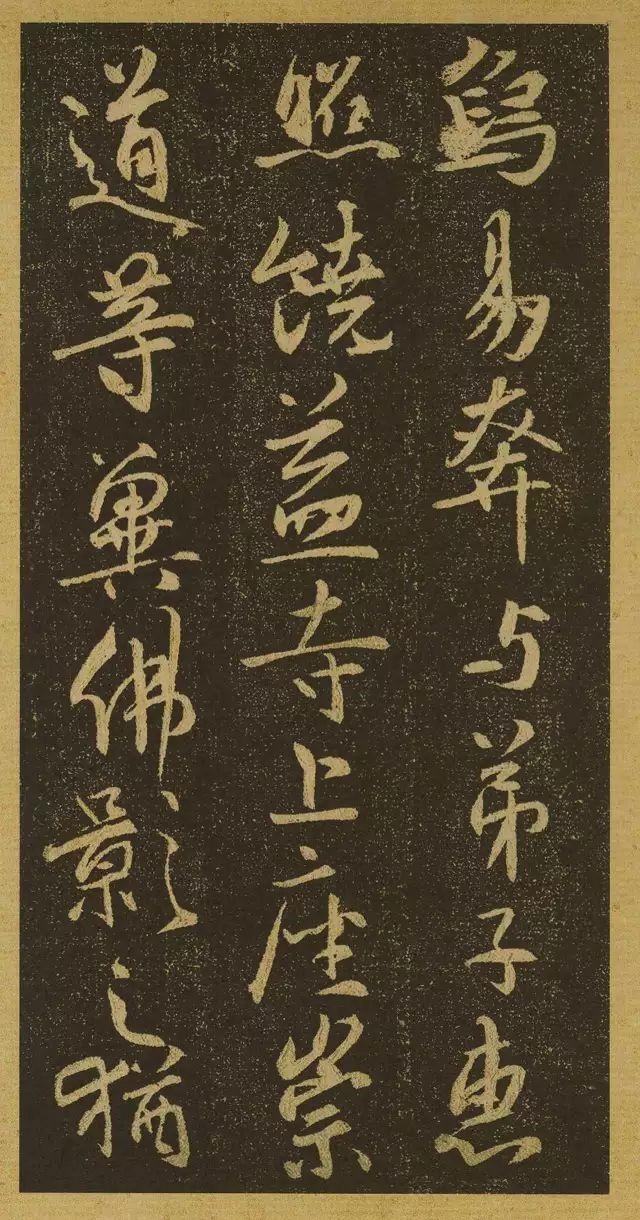 烏易奔与弟子惠
照饒益寺上座崇
道等冀佛影之猶